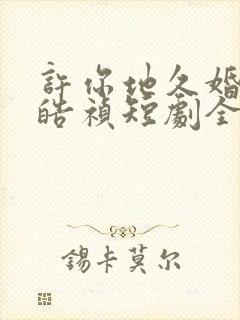 許你地久婚
皓禎短劇全
錫卡莫尔